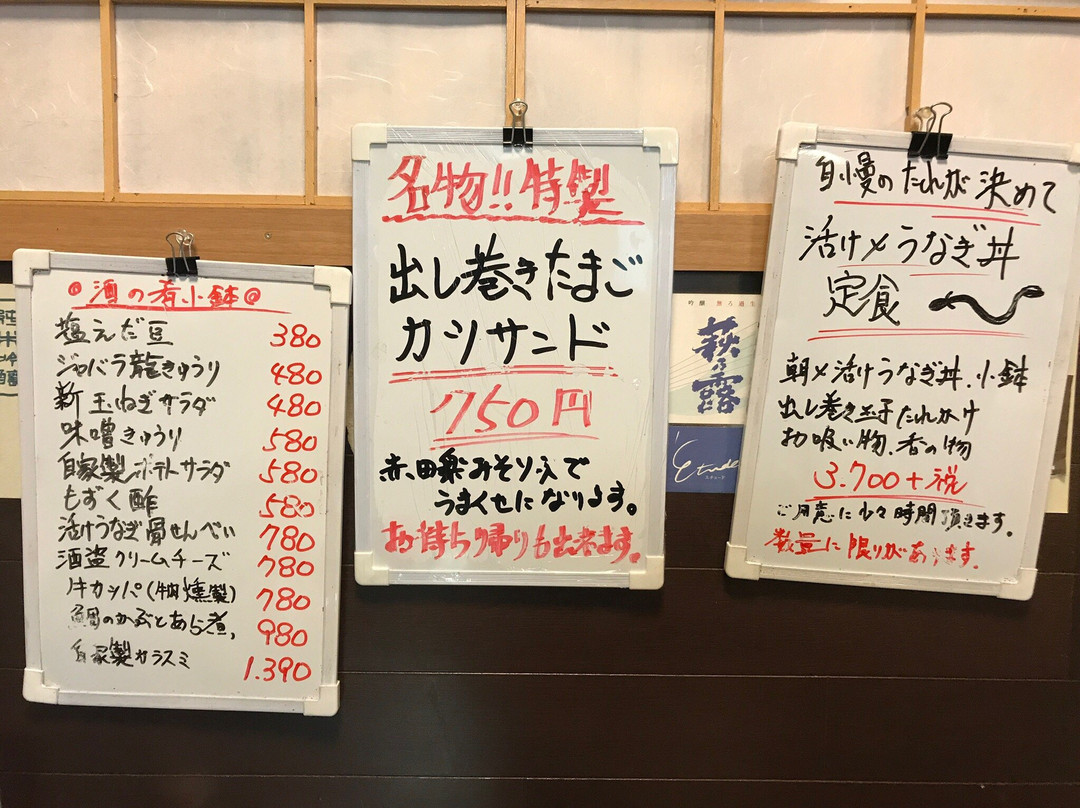 ◎酒の肴小鉢◎
塩えだ豆 380
ジャバラ龍きゅうり 480
新玉ねぎサラダ 480
味噌きゅうり 580
自家製ポテトサラダ 580
もずく酢 580
活けうなぎ骨せんべい 780
酒盗クリームチーズ 780
牛カッパ(燻製) 780
鯛のかぶとあら煮 980
自家製カラスミ 1.390
名物!!特製
出し巻きたまご
カツサンド
750円
赤田楽みそソースで
うまくせになります。
お持ち帰りも出来ます。
吟醸 無ろ過生
萩乃露
Etude
自慢のたれが決めて
活け〆うなぎ丼
定食
朝〆活けうなぎ丼.小鉢
出し巻き玉子たれかけ
お吸い物.香の物
3.700+税
ご用意に少々時間頂きます。
数量に限りがあります。